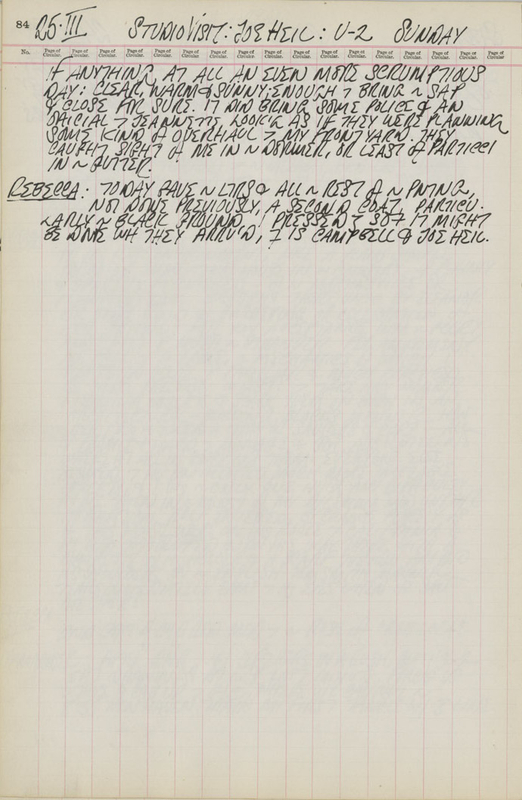 84 25·III STUDIO VISIT: JOE HEIL: U-2 SUNDAY
No. Page of Circular. Page of Circular. Page of Circular. Page of Circular. Page of Circular. Page of Circular. Page of Circular. Page of Circular. Page of Circular. Page of Circular. Page of Circular. Page of Circular. Page of Circular. Page of Circular. Page of Circular. Page of Circular. Page of Circular.
IF ANYTHING AT ALL AN EVEN MORE SCRUMPTIOUS
DAY: CLEAR, WARM & SUNNY; ENOUGH T BRING ~ SAP
& CLOSE FOR SURE. IT DID BRING SOME POLICE & AN
OFFICIAL T JEANNETTE, LOOK'G AS IF THEY WERE PLANNING
SOME KIND OF OVERHAUL T MY FRONT YARD. THEY
CAUGHT SIGHT OF ME IN ~ DORMER, OR LEAST OF PARTICCI
IN ~ GUTTER.
REBECCA: TODAY GAVE ~ LTRS & ALL ~ REST OF ~ PNTING,
NOT DONE PREVIOUSLY, A SECOND COAT, PARTICU-
LARLY ~ BLACK GROUND. I PRESSED T SO IT MIGHT
BE DONE WH THEY ARRIV'D, I IS CAMPBELL & JOE HEIL.